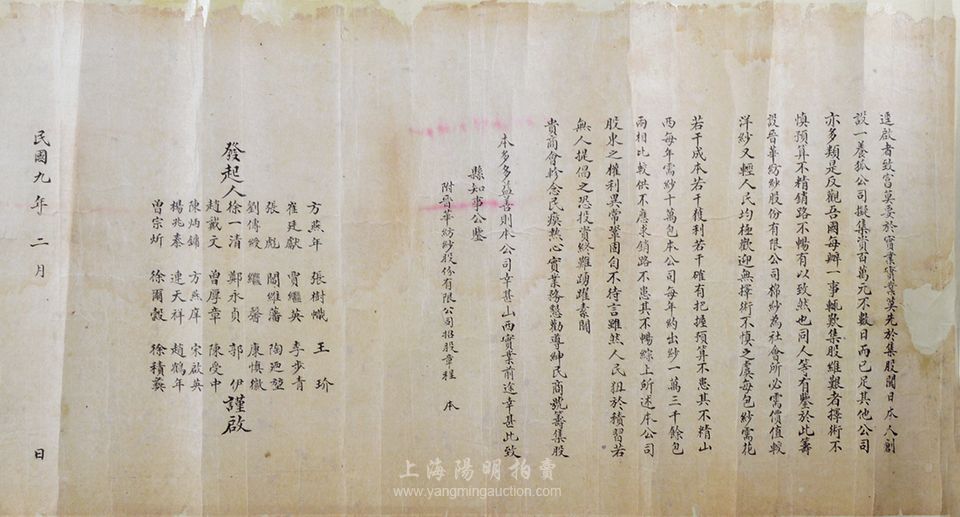 逕啟者致富莫要於實業實業莫先於集股聞日本人創
設一養狐公司擬集資百萬元不數日而已足其他公司
亦多類是反觀吾國每辦一事輒歎集股維艱者擇術不
慎預算不精銷路不暢有以致然也同人等有鑒於此籌
設晉華紡紗股份有限公司棉紗為社會所必需價值較
洋紗又輕人民均極歡迎無擇術不慎之虞每包紗需花
若干成本若干獲利若干確有把握預算不患其不精山
西每年需紗十萬包本公司每年約出紗一萬三千餘包
兩相比較供不應求銷路不患其不暢綜上所述本公司
股東之權利異常鞏固自不待言雖然人民狃於積習若
無人提倡之恐投資終難踴躍素聞
貴商會軫念民瘼熱心實業務懇勸導紳民商號籌集股
本多多益善則本公司幸甚山西實業前途幸甚此致
縣知事公鑒
附晉華紡紗股份有限公司招股章程 本
方燕年 張樹幟 王 玠
崔廷獻 賈繼英 李步青
張 彪 閻維藩 陶廻瑩
劉傳綬 繼 馨 康慎徽
發起人 徐一清 鄭永貞 郭 伊 謹啟
趙戴文 曾厚章 陳受中
陳炳鏞 方燕庠 宋啟英
楊兆泰 連天祥 趙鶴年
曾宗炘 徐爾穀 徐積蓂
民國九年 二月 日
上海陽明拍賣
www.yangmingauction.com